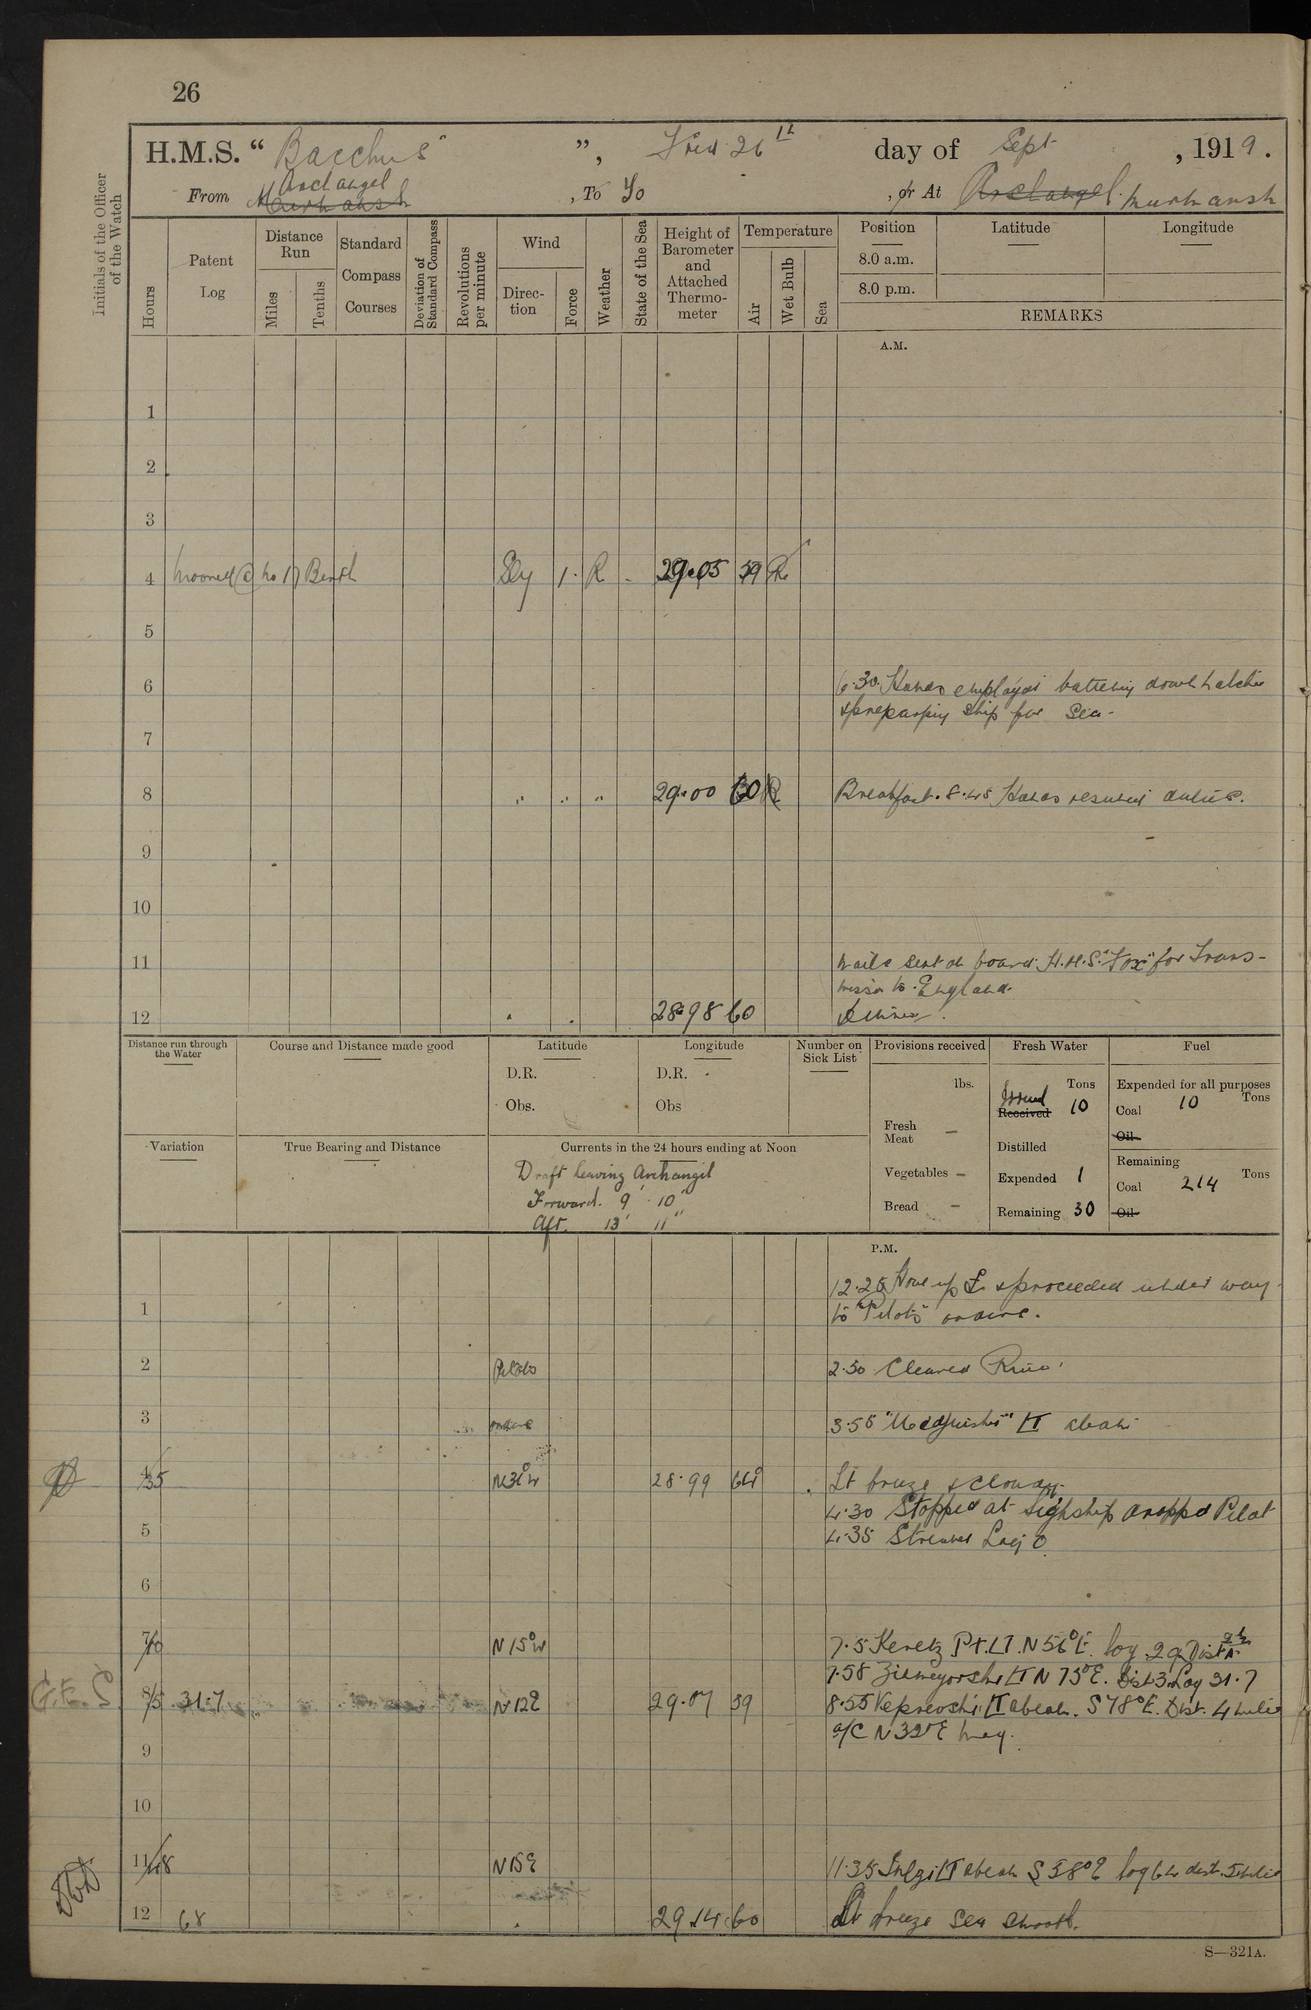 26
H.M.S. “ Bacchus ”, Fri 26th day of Sept , 1919.
From Murmansk Archangel , To To , or At Archangel. Murmansk
Initials of the Officer of the Watch
Hours
Patent Log
Distance Run
Miles
Tenths
Standard Compass Courses
Deviation of Standard Compass
Revolutions per minute
Wind
Direction
Force
Weather
State of the Sea
Height of Barometer and Attached Thermometer
Temperature
Air
Wet Bulb
Sea
Position
Latitude
Longitude
8.0 a.m.
8.0 p.m.
REMARKS
A.M.
1
2
3
4 Moored @ No 17 Berth Sly 1. R - 29.05 59
5
6 6.30. Hands employed battening down hatches
& preparing ship for Sea -
7
8 " " " 29.00 60 Breakfast. 8.45 Hands resumed duties.
9
10
11 Mails sent on board H.M.S. "Fox" for Trans-
mission to England.
12 28.98 60 Dinner.
Distance run through the Water
Course and Distance made good
Latitude
Longitude
Number on Sick List
Provisions received
Fresh Water
Fuel
D.R.
D.R.
Obs.
Obs
lbs.
Fresh Meat —
Vegetables —
Bread —
Tons
Received Issued 10
Distilled
Expended 1
Remaining 30
Expended for all purposes
Tons
Coal 10
Oil
Remaining
Tons
Coal 214
Oil
Variation
True Bearing and Distance
Currents in the 24 hours ending at Noon
Draft leaving Archangil
Forward. 9' 10"
Aft. 13' 11"
P.M.
12.25 Hove up & proceeded under way
1 to "Pilots" orders.
2 Pilots 2.50 Cleared River
3 orders 3.55 LT abeam
4/35 N31°W 28.99 64° Lt breeze & Cloudy.
4.30 Stopped at Lightship dropped Pilot
5 4.35 Streamed Log 0
6
7/10 N15°W 7.5 Keretz Pt. LT. N56°E. log 29 Dist
7.58 LT N 73°E. Dist 3. Log 31.7
8/5 31.7 N12E 29.07 59 8.55 LT abeam. S78°E. Dist. 4 miles
9 a/C N32°E mag.
10
11/48 N15E 11.35 LT abeam S58°E log 64 dist. 5 miles
12 68 29.14 60 Lt breeze Sea smooth.
S—321A.